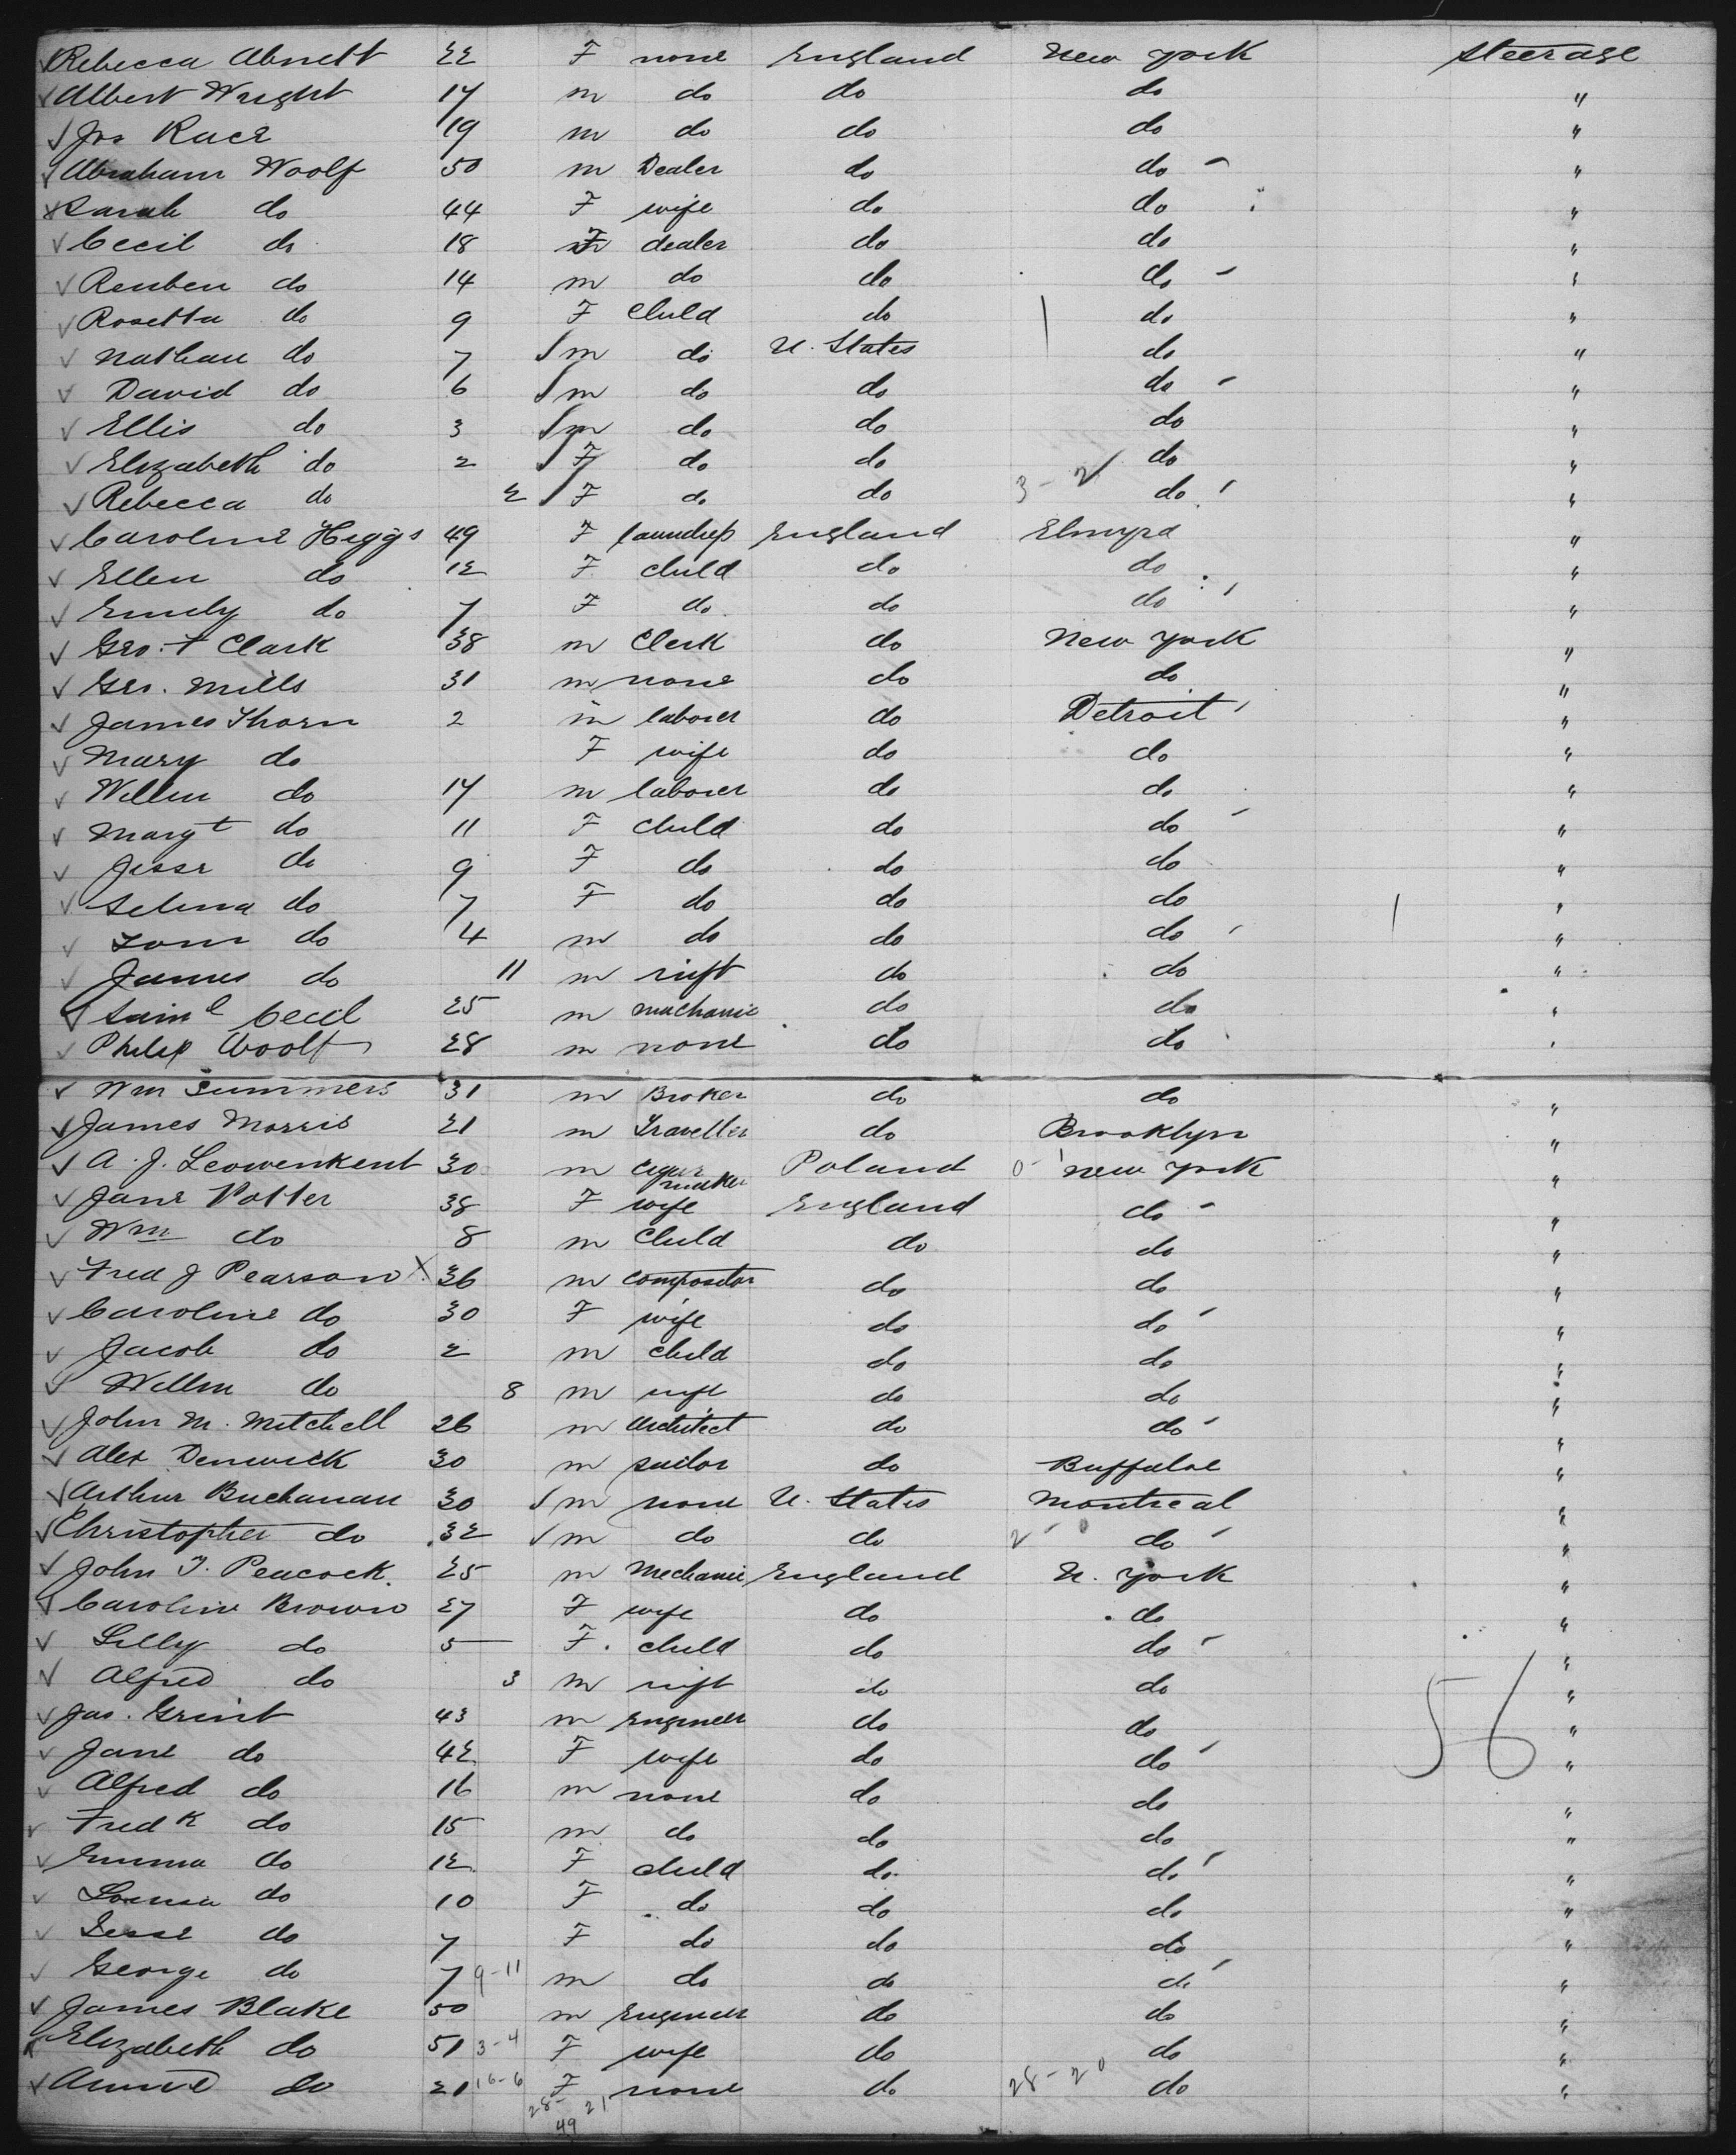 Rebecca Abnett 22 F none England New York Steerage
Albert Wright 17 m do do do "
Jos Race 19 m do do do "
Abraham Woolf 50 m Dealer do do "
Sarah do 44 F wife do do "
Cecil do 18 F dealer do do "
Reuben do 14 m do do do "
Rosetta do 9 F Child do do "
Nathan do 7 m do U. States do "
David do 6 m do do do "
Ellis do 3 m do do do "
Elizabeth do 2 F do do do "
Rebecca do 2 F do do 3 - 2 do "
Caroline Higgs 49 F laundress England Elmyra "
Ellen do 12 F child do do "
Emily do 7 F do do do "
Geo. F Clark 38 m Clerk do New York "
Geo. Mills 31 m none do do "
James Thorn 2 m laborer do Detroit "
Mary do F wife do do "
Willm do 17 m laborer do do "
Margt do 11 F child do do "
Jesse do 9 F do do do "
Selina do 7 F do do do "
Tom do 4 m do do do "
James do 11 m inft do do "
Saml Cecil 25 m mechanic do do "
Philip Woolf 28 m none do do "
Wm Summers 31 m Broker do do "
James Morris 21 m Traveller do Brooklyn "
A. J. Leowenkent 30 m cigar maker Poland 0 - 1 New York "
Jane Potter 38 F wife England do "
Wm do 8 m Child do do "
Fred J Pearson X 36 m compositor do do "
Caroline do 30 F wife do do "
Jacob do 2 m child do do "
Willm do 8 m inft do do "
John M. Mitchell 26 m Architect do do "
Alex Denwick 30 m sailor do Buffaloe "
Arthur Buchanan 30 m none U. States Montreal "
Christopher do 32 m do do 2 - 0 do "
John T. Peacock. 25 m Mechanic England N. York "
Caroline Brown 27 F wife do do "
Lilly do 5 F. child do do "
Alfred do 3 m inft do do 56 "
Jas. Grint 43 m Engineer do do "
Jane do 42 F wife do do "
Alfred do 16 m none do do "
Fredk do 15 m do do do "
Emma do 12 F child do do "
Louisa do 10 F do do do "
Jesse do 7 F do do do "
George do 7 9-11 m do do do "
James Blake 50 m Engineer do do "
Elizabeth do 51 3-4 F wife do do "
Annie do 21 16-6 F none do 28-20 do "
28- 21
49